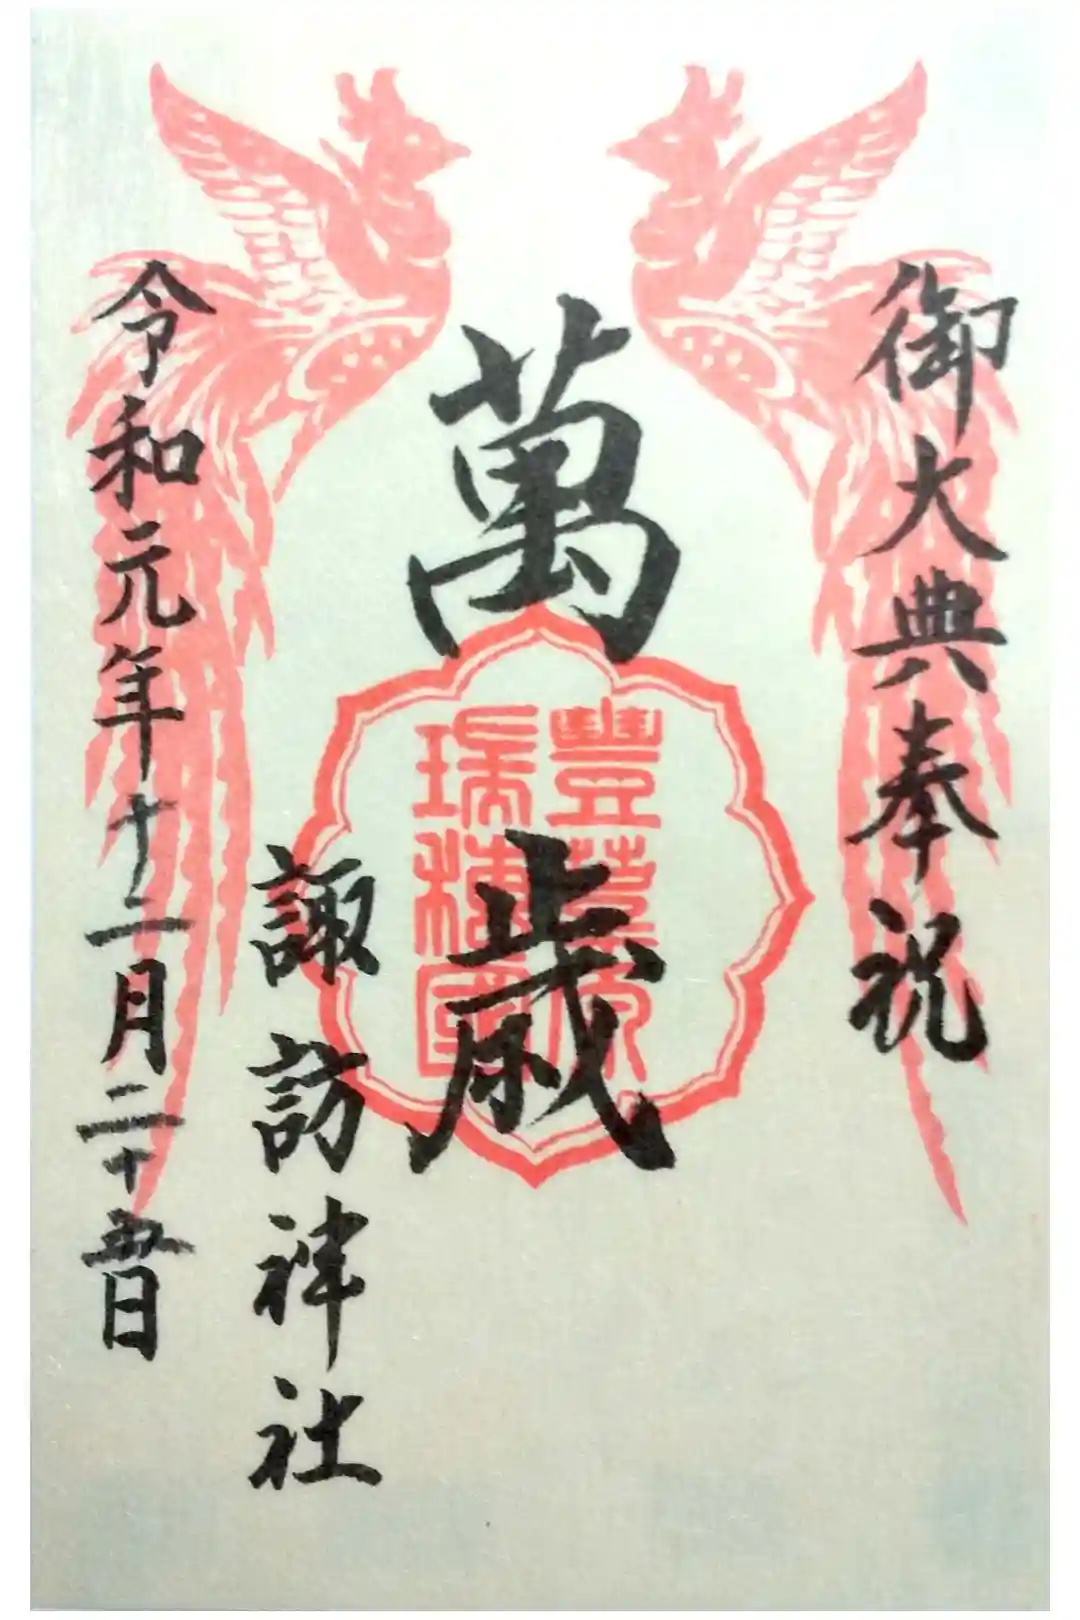 御大典奉祝
萬歳
豐葦原
瑞穂國
諏訪神社
令和元年十二月二十五日